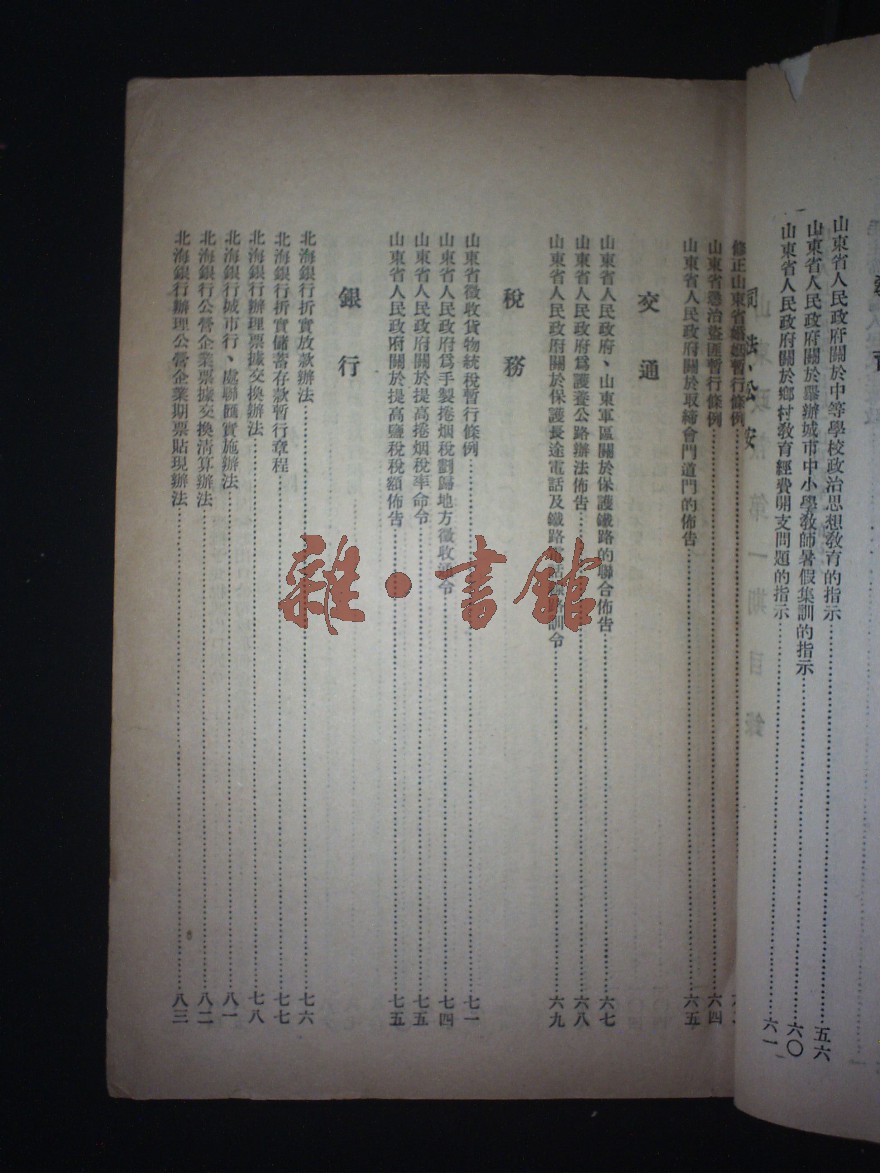 育
山東省人民政府關於中等學校政治思想教育的指示……五六
山東省人民政府關於舉辦城市中小學教師暑假集訓的指示……六〇
山東省人民政府關於鄉村教育經費開支問題的指示……六一
司法、公安
修正山東省婚姻暫行條例
山東省懲治盜匪暫行條例……六四
山東省人民政府關於取締會門道門的佈告……六五
交通
山東省人民政府、山東軍區關於保護鐵路的聯合佈告……六七
山東省人民政府爲護養公路辦法佈告……六八
山東省人民政府關於保護長途電話及鐵路電話線路訓令……六九
稅務
山東省徵收貨物統稅暫行條例……七一
山東省人民政府爲手製捲烟稅劃歸地方徵收令……七四
山東省人民政府關於提高捲烟稅率命令……七五
山東省人民政府關於提高鹽稅稅額佈告……七五
銀行
北海銀行折實放款辦法……七六
北海銀行折實儲蓄存款暫行章程……七七
北海銀行辦理票據交換辦法……七八
北海銀行城市行、處聯匯實施辦法……八一
北海銀行公營企業票據交換清算辦法……八二
北海銀行辦理公營企業期票貼現辦法……八三
雜·書館